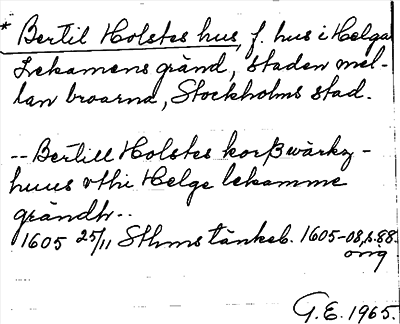 * Bertil Holstes hus, f. hus i Helga
Lekamens gränd, staden mel-
lan broarna, Stockholms stad.
-- Bertill Holstes korßwärkz-
huus vthi Helge lekamme
grändh--
1605 25/11 Sthms tänkeb. 1605-08, s. 88.
orig
G.E. 1965.